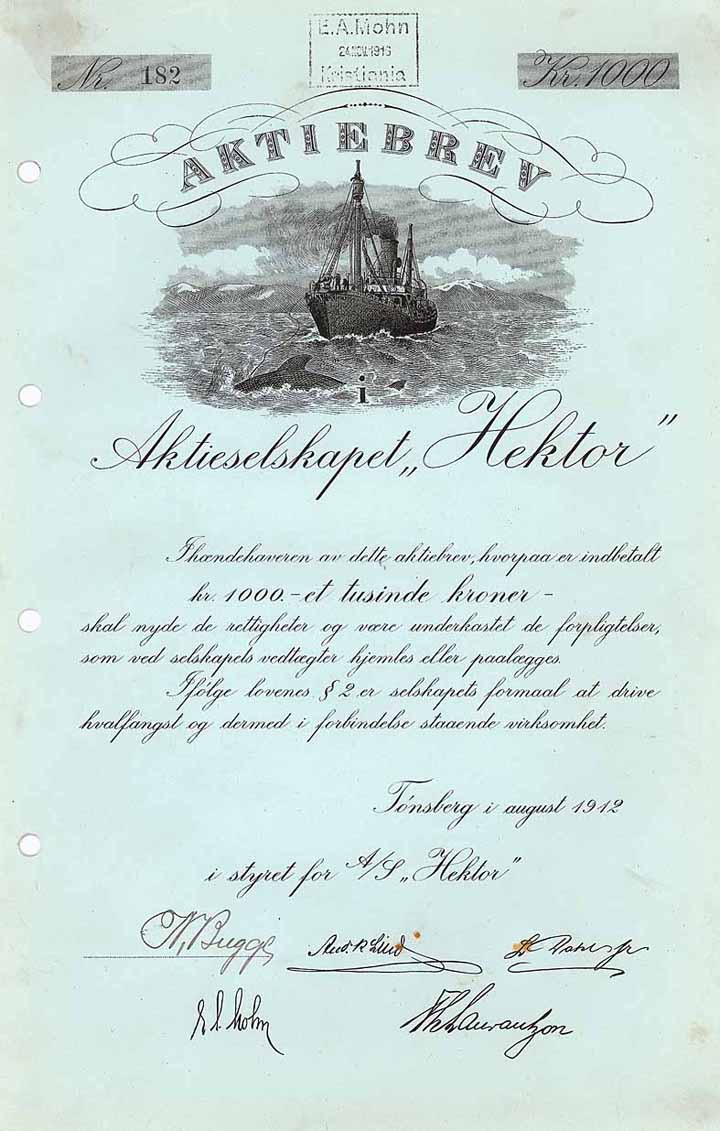 E.A.Mohn
24 NOV. 1916
Kristiania
Nr. 182
Kr. 1000
AKTIEBREV
i
Aktieselskapet „Hektor”
Ihændehaveren av dette aktiebrev, hvorpaa er indbetalt
kr. 1000.- et tusinde kroner -
skal nyde de rettigheter og være underkastet de forpligtelser,
som ved selskapets vedtægter hjemles eller paalægges.
Ifølge lovenes § 2 er selskapets formaal at drive
hvalfangst og dermed i forbindelse staaende virksomhet.
Tónsberg i august 1912
i styret for A/S „Hektor”
N. Bugge